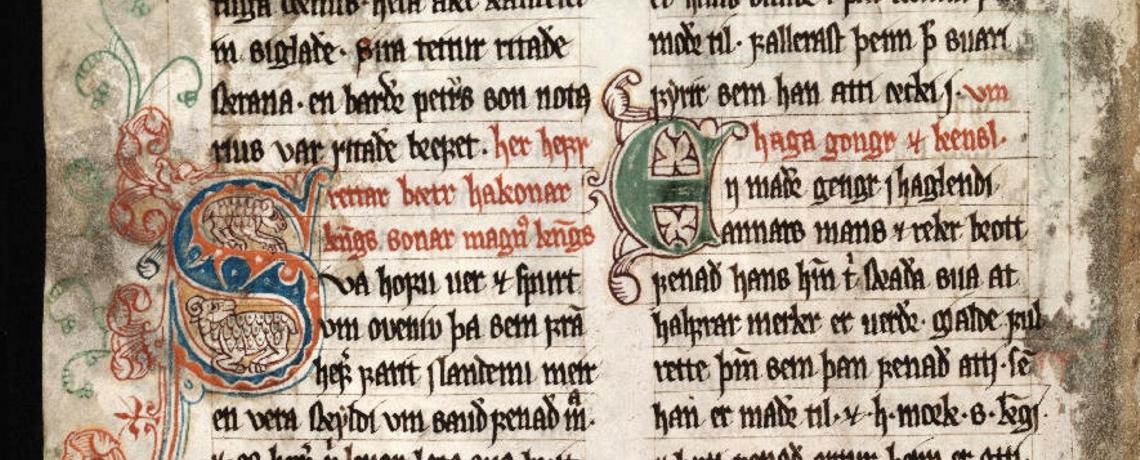 m siglaðe. sira teitur ritaðe
skrana. en barðr petrs son nota
rius var ritaðe breꝼet. her heꝼr
rettar bœtr hakonar
kn̄gs sonar magn⁹ kn̄gs
Sva hoꝼu uer ⁊ spurt
vm oveniu þa sem ꝼra
heꝼ ꝼarit jslandinu meir
en vera skylldi vm sauð ꝼenað m̄.
til. ꝼallerast þeim þ̄ suari
ꝼyrir sem han atti ecki j. vm
haga gongr ⁊ kensl.
En maðr gengr j haglendi
annars mans ⁊ rekr brott
ꝼenað hans hm̄ t̄ skaða sua at
halꝼrar merkr er uerðr. gialde ꝼul
rette þm̄ sem þan ꝼenað atti. se
han er maðr til. ⁊ .h. mork .s. kḡi